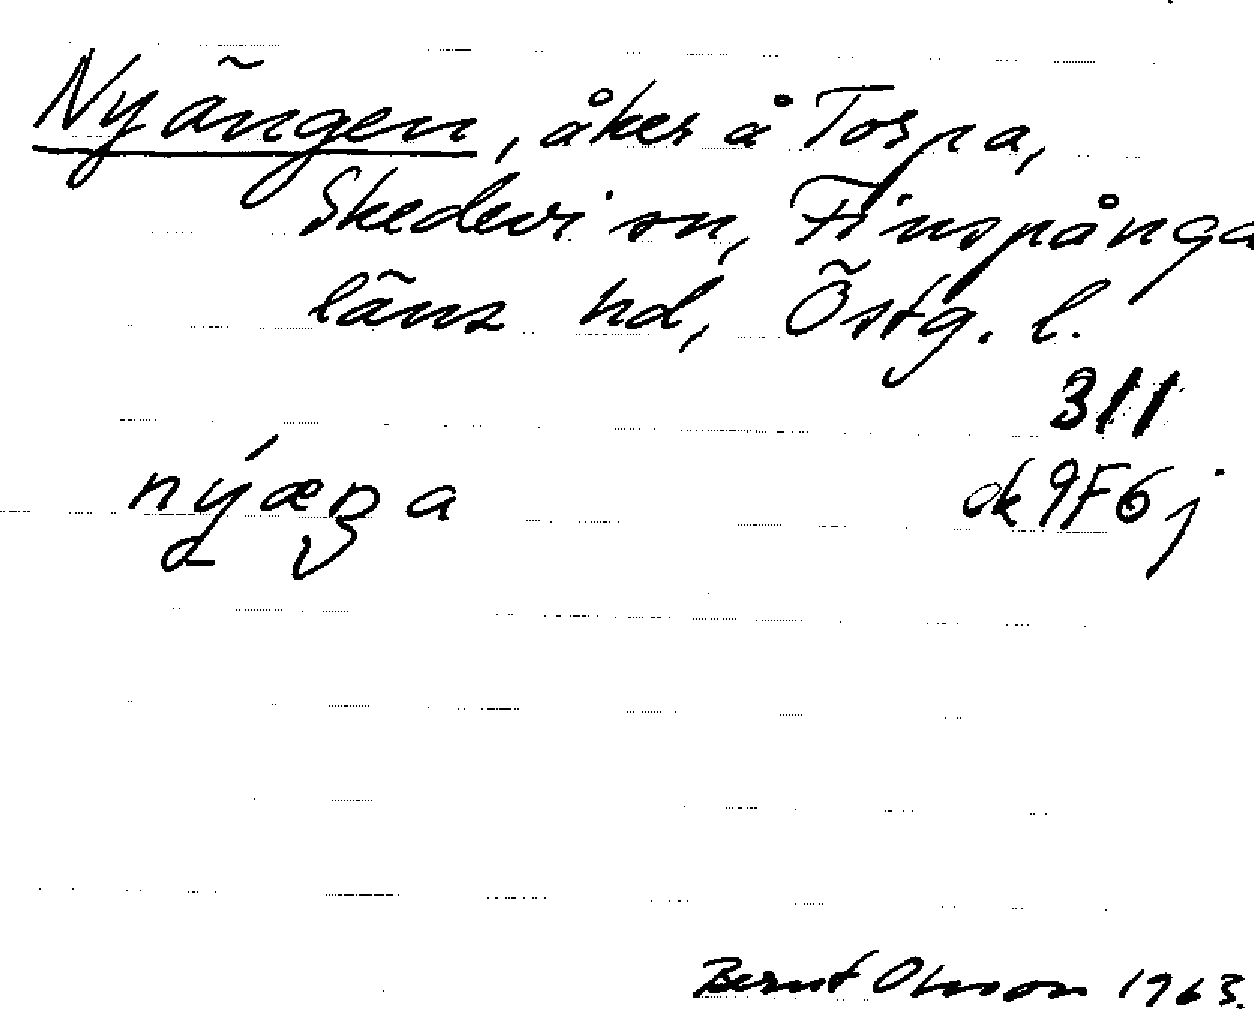 Nyängen, åker å Torpa,
Skedevi sn, Finspånga
läns hd, Östg. l.
311
ek 9F6j
nýæŋa
Bernt Olsson 1963.